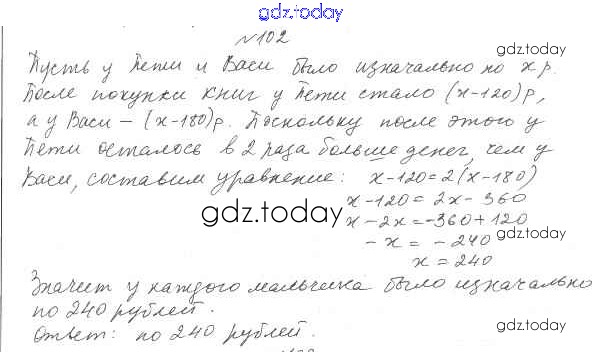 gdz.today
№102
gdz.today
Пусть у Пети и Васи было изначально по x р.
После покупки книг у Пети стало (x-120)р,
gdz.today
а у Васи – (x-180)р. Поскольку после этого у
Пети осталось в 2 раза больше денег, чем у
Васи, составим уравнение: x-120=2(x-180)
x-120=2x-360
gdz.today
gdz.today
x-2x=-360+120
-x=-240
gdz.today
x=240
Значит у каждого мальчика было изначально
по 240 рублей.
Ответ: по 240 рублей.
gdz.today